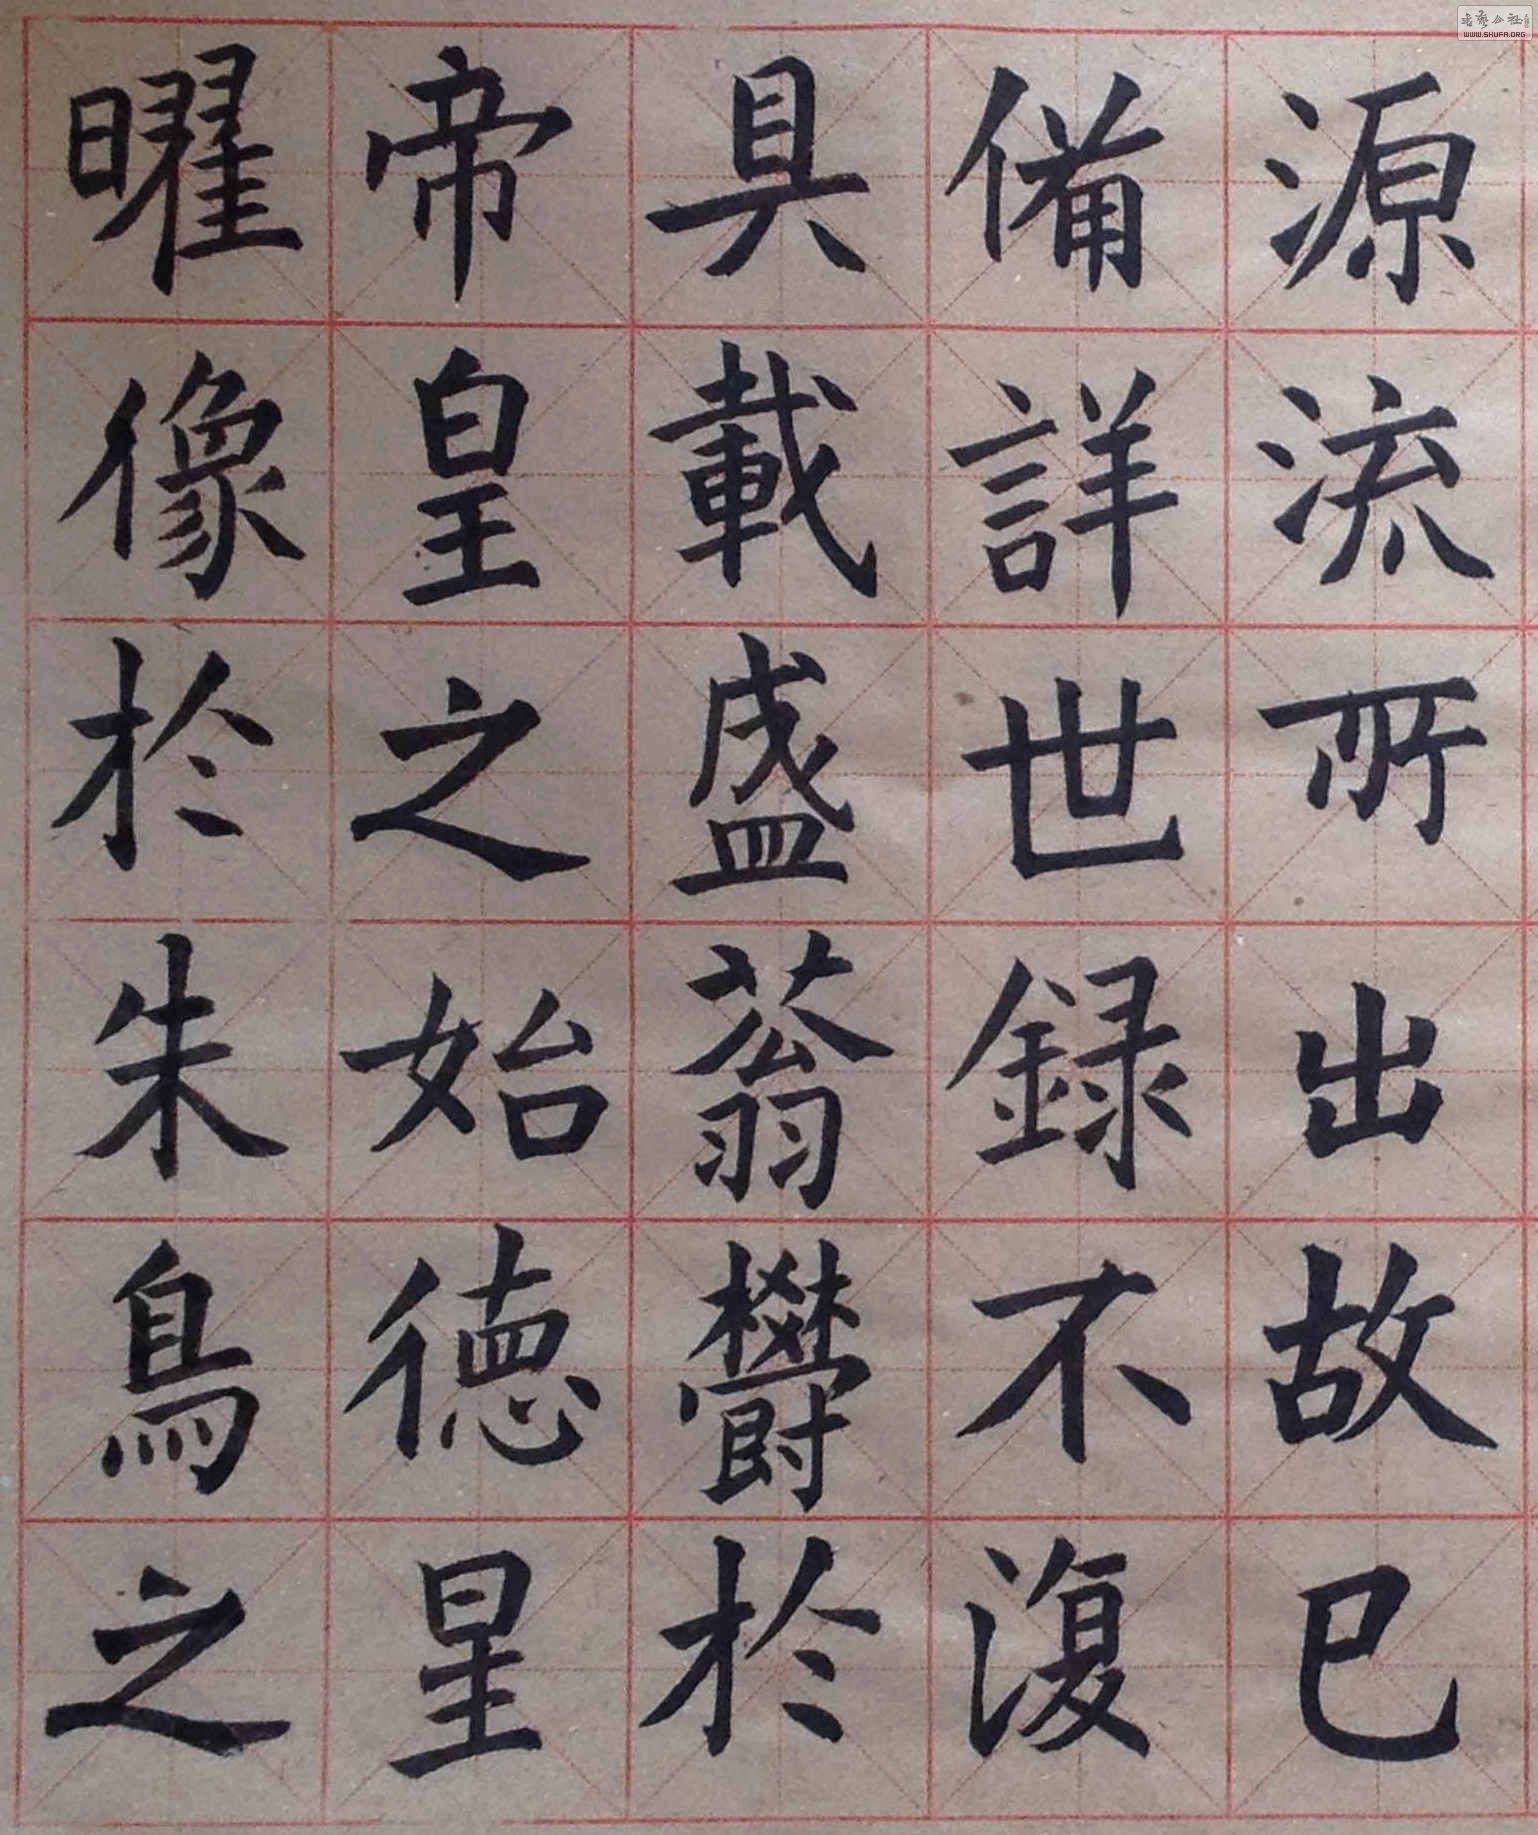 源流所出故已
備詳世録不復
具載盛蓊欝於
帝皇之始德星
曜像於朱鳥之
WWW.SHUFA.ORG